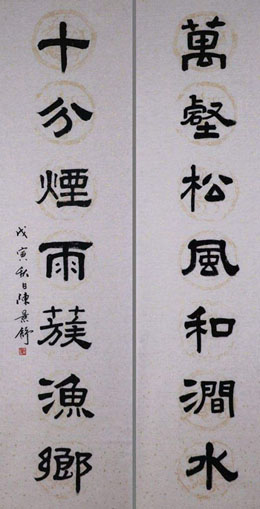 萬壑松風和澗水
十分煙雨蔟漁鄉
戊寅秋日陳景舒